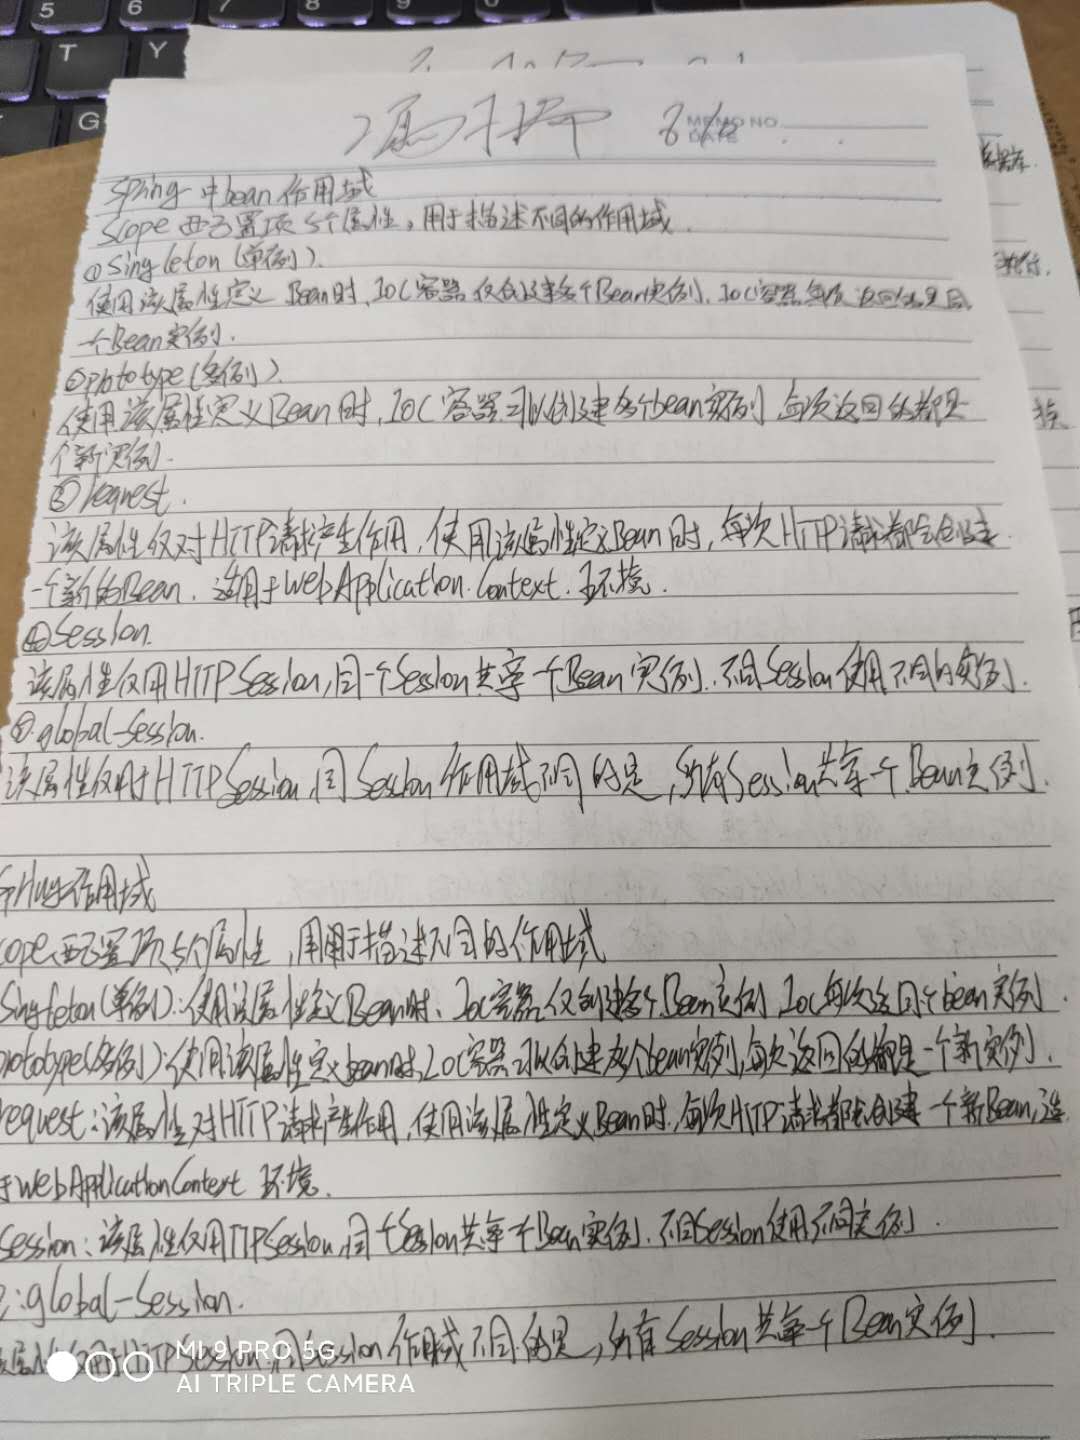 5 6 7 8 9
T Y
G
冯
MEMO NO.
DATE
Spring 中bean作用域
Scope 配置项 5个属性，用于描述不同的作用域.
①Singleton (单例).
使用该属性定义 Bean时, IOC容器仅创建多个Bean实例, IOC容器每次返回的是同
一个Bean实例.
②prototype (多例).
使用该属性定义Bean时, IOC 容器可以创建多个bean实例 每次返回的都是一
个新实例.
③request.
该属性仅对HTTP请求产生作用, 使用该属性定义Bean时, 每次HTTP请求都会创建
一个新的Bean. 适用于WebApplication.Context.环境.
④Session.
该属性仅用HTTP Session,同一个Session共享一个Bean实例. 不同Session使用不同的实例.
⑤.global-Session.
该属性仅用于HTTP Session,同Session作用域不同的是, 所有Session共享一个Bean实例.
Spring作用域
cope配置项5个属性, 用用于描述不同的作用域
Singleton(单例): 使用该属性定义Bean时、IOC容器仅创建多个Bean实例 IOC每次返回个bean实例.
prototype(多例): 使用该属性定义bean时,IOC容器可以创建多个bean实例,每次返回的都是一个新实例.
request: 该属性对HTTP请求产生作用, 使用该属性定义Bean时, 每次HTTP请求都会创建一个新Bean, 适
于WebApplicationContext 环境.
Session: 该属性仅用TTPSession,同个Session共享个Bean实例. 不同Session使用不同实例.
:global-Session.
属性仅用于HTTPSession 同Session作用域不同的是, 所有Session共享一个Bean实例.
MI 9 PRO 5G
AI TRIPLE CAMERA